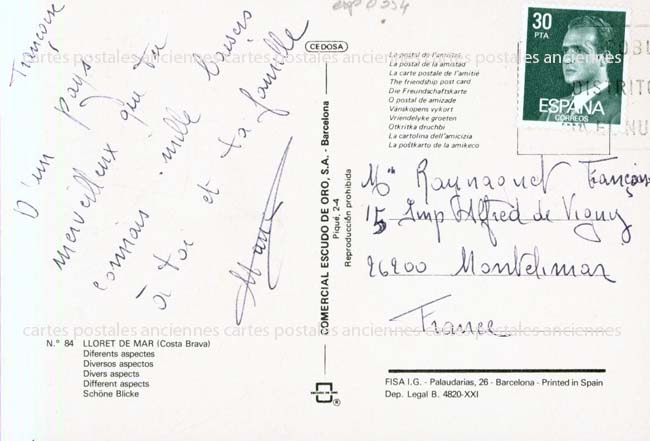 Françoise
D'un pays
merveilleux que tu
connais mille baisers
à toi et ta famille
CEDOSA
La postal de l'amistat
La postal de la amistad
La carte postale de l'amitié
The friendship post card
Die Freundschaftskarte
O postal de amizade
Vänskapens vykort
Vriendelyke groeten
Otkritka druchbi
La cartolina dell'amicizia
La poŝtkarto de la amikeco
30
PTA
ESPAÑA
CORREOS
COMERCIAL ESCUDO DE ORO, S.A. - Barcelona
Piqué, 2-4
Reproducción prohibida
Françoise
15 Imp Alfred de Vigny
26200 Montelimar
France
N.° 84 LLORET DE MAR (Costa Brava)
Diferents aspectes
Diversos aspectos
Divers aspects
Different aspects
Schöne Blicke
FISA I.G. - Palaudarias, 26 - Barcelona - Printed in Spain
Dep. Legal B. 4820-XXI
cartes postales anciennes cartes postales anciennes cartes postales anciennes
cartes postales anciennes cartes postales anciennes cartes postales anciennes